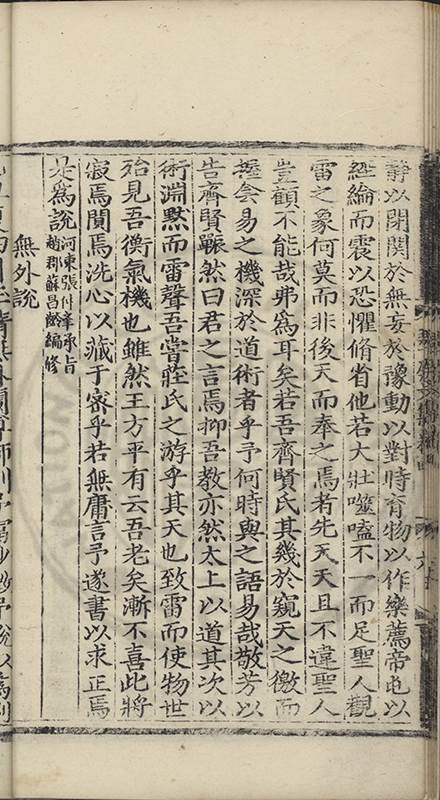 靜以閉關於無妄於豫動以對時育物以作樂薦帝屯以
經綸而震以恐懼脩省他若大壯噬嗑不一而足聖人觀
雷之象何莫而非後天而奉之焉者先天天且不違聖人
豈顧不能哉弗為耳矣若吾齊賢氏其幾於窺天之徼而
握会易之機深於道術者乎予何時與之語易哉敬芳以
告齊賢囅然曰君之言焉抑吾教亦然太上以道其次以
術淵默而雷聲吾嘗莊氏之游乎其天也致雷而使物世
殆見吾衡氣機也雖然王方平有云吾老矣漸不喜此將
寂焉闃焉洗心以藏于密乎若無庸言予遂書以求正焉
是為說
河東張
承旨
趙郡蘇昌齡編修
無外說